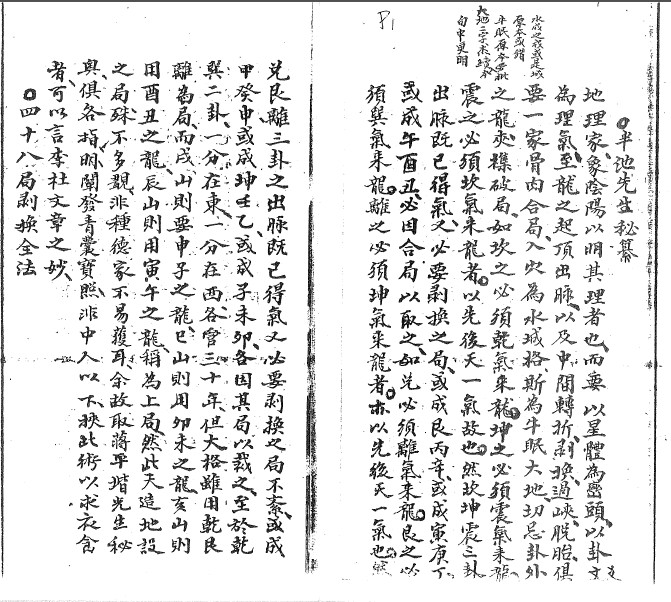 P1
水城之城或是域
原本或錯
牛眠原本要批
大地二字未續本
自申更明
半池先生秘纂
地理家象陰陽以明其理者也而要以星體為巒頭以卦爻
為理氣至龍之起頂出脉以及中間轉折剥換過峽脱胎俱
要一家骨肉合局入穴為水城格斯為牛眠大地切忌卦外
之龍夾襍破局如坎之必須乾氣来龍坤之必須震氣来龍
震之必須坎氣来龍者以先後天一氣故也然坎坤震三卦
出脉既已得氣又必要剥換之局或成艮丙辛或成寅庚丁
或成午酉丑必因合局以取之如兑必須離氣来龍艮之必
須巽氣来龍離之必須坤氣来龍者亦以先後天一氣也然
兑艮離三卦之出脉既已得氣又必要剥換之局不紊或成
甲癸申或成坤壬乙或成子未卯各因其局以裁之至於乾
巽二卦一分在東一分在西各管三十年但大格雖用乾艮
離為局而戌山則要申子之龍巳山則用卯未之龍亥山則
用酉丑之龍辰山則用寅午之龍稱為上局然此天造地設
之局殊不多覯非種德家不易獲耳余故取蔣平堦先生秘
奥俱各指明闡發青囊寶照非中人以下挾此術以求衣食
者可以言李杜文章之妙
四十八局剥換全法